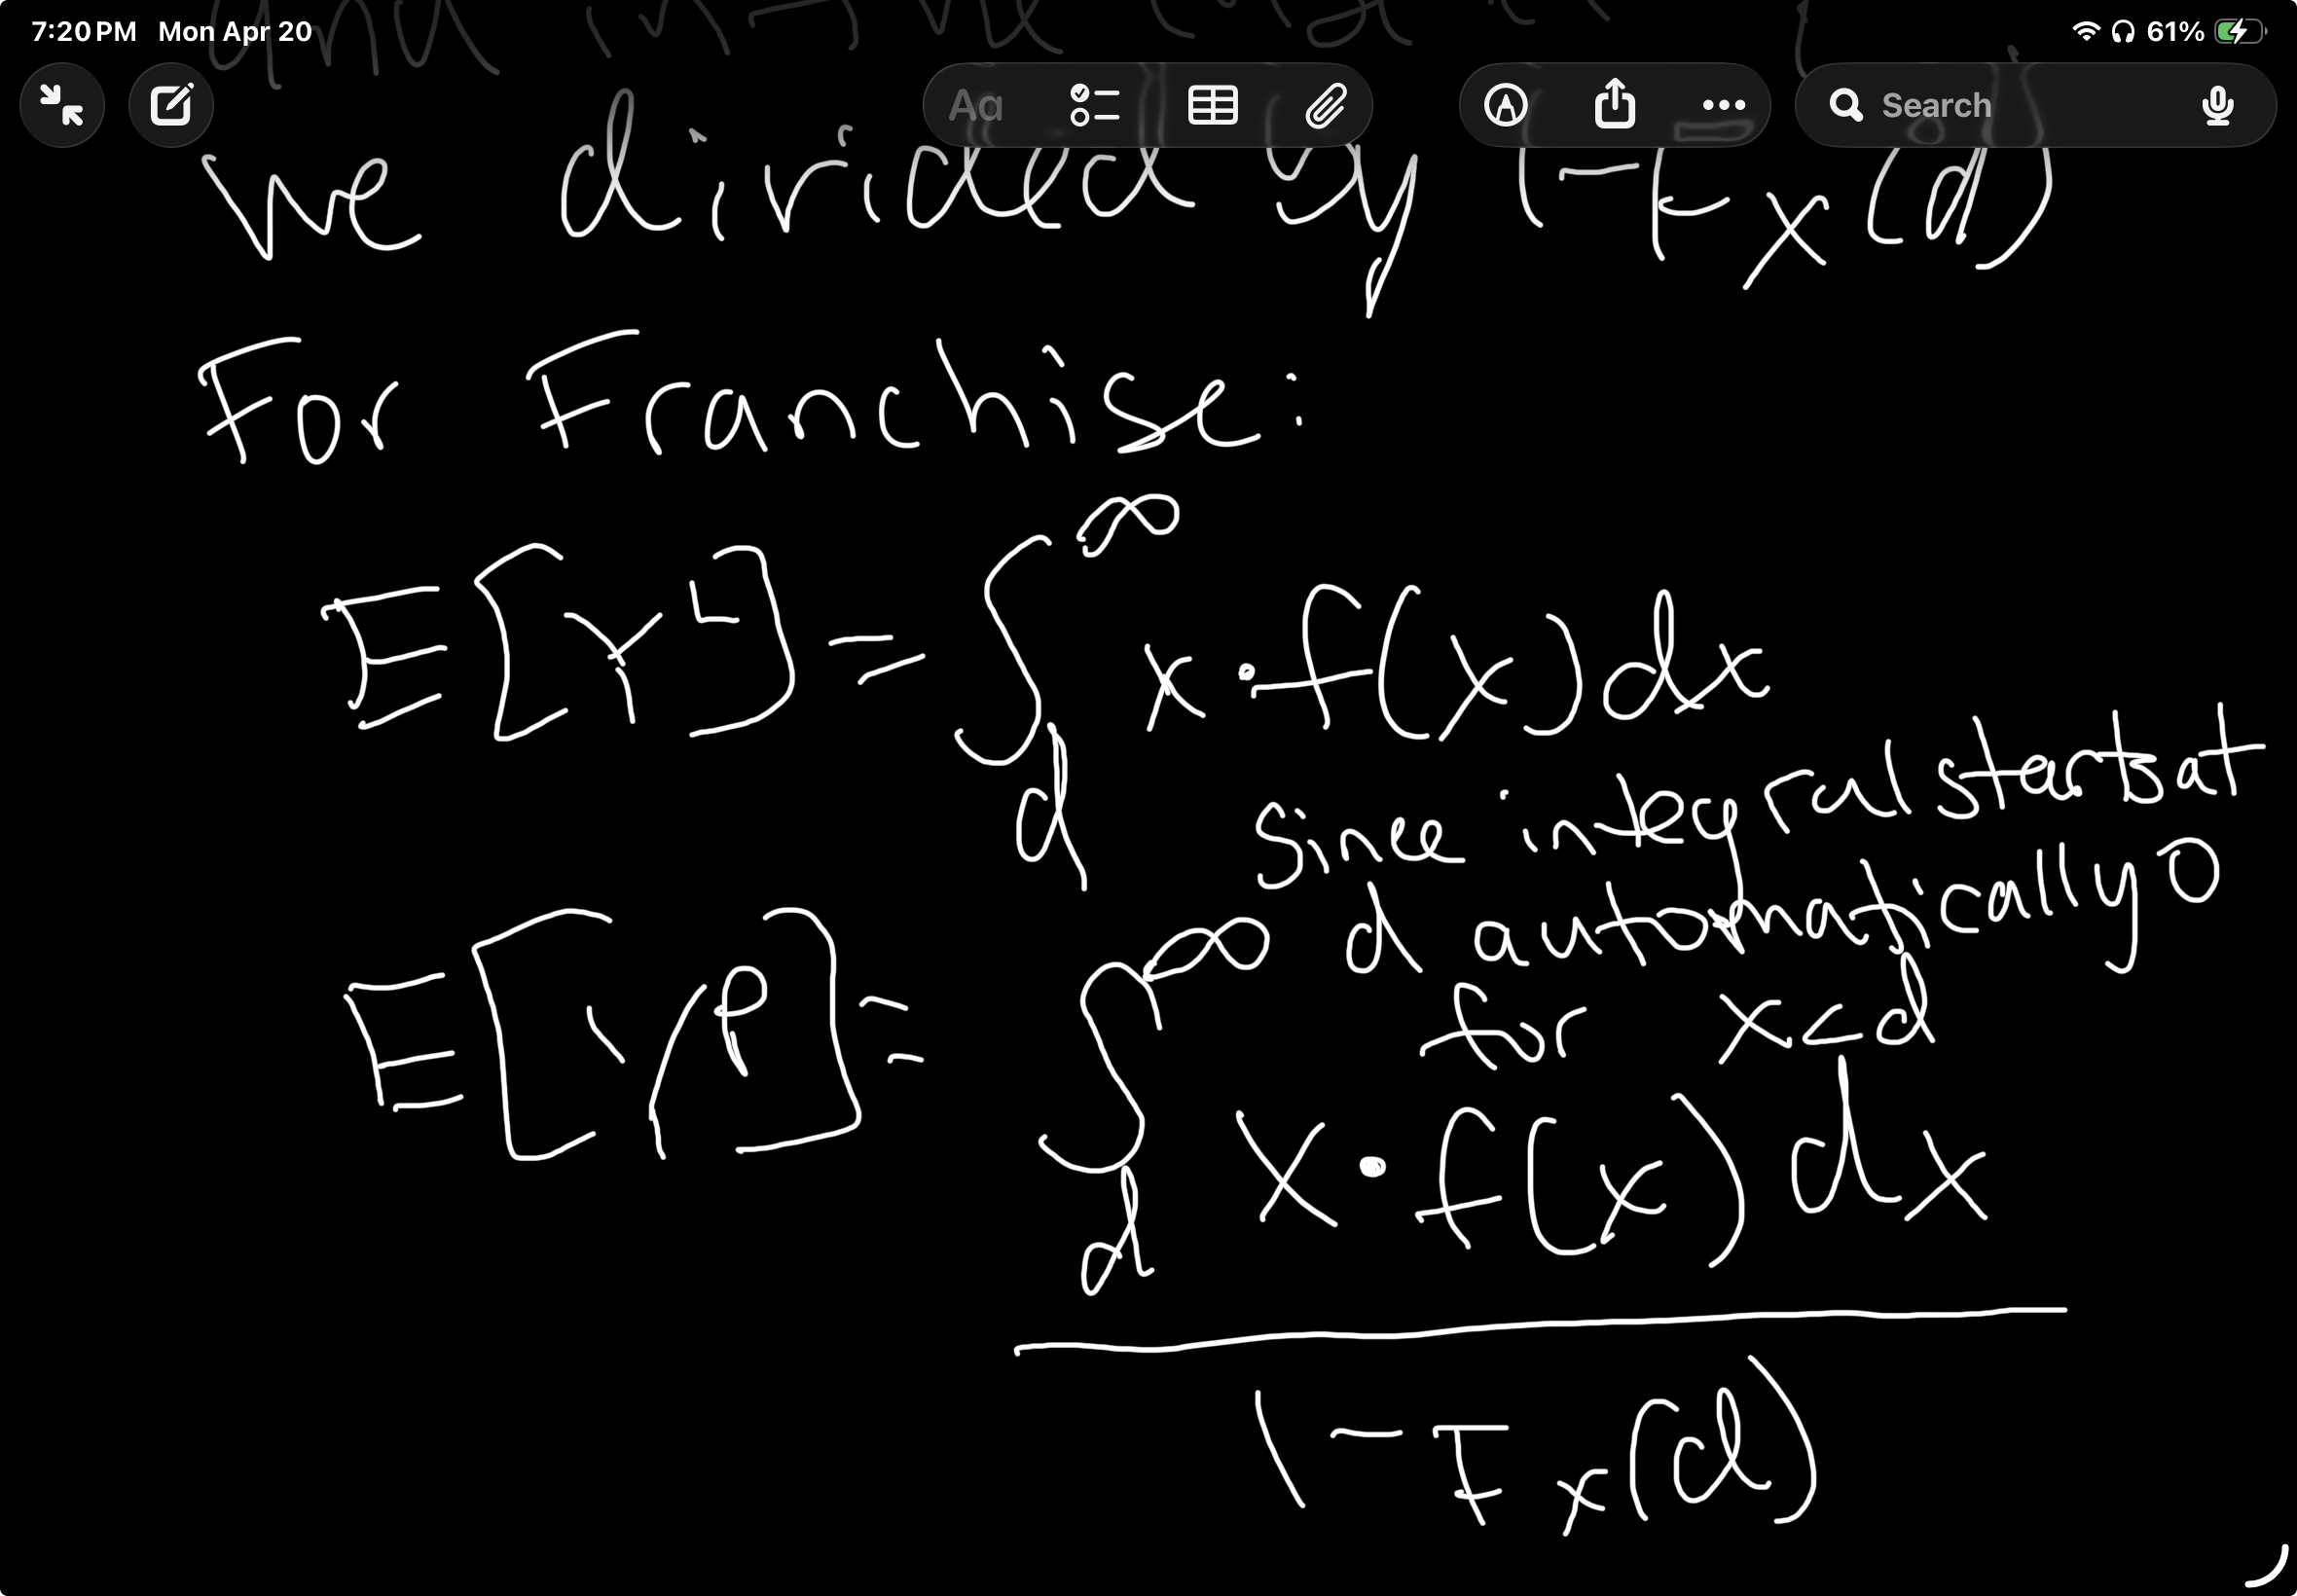 7:20 PM Mon Apr 20
61%
Aa
Search
we divided by 1-Fx(d)
For Franchise:
E[Y^L] = ∫_d^∞ x·f(x)dx
since integral starts at
d automatically 0
for x≤d
E[Y^P] = ∫_d^∞ x·f(x)dx
1-Fx(d)